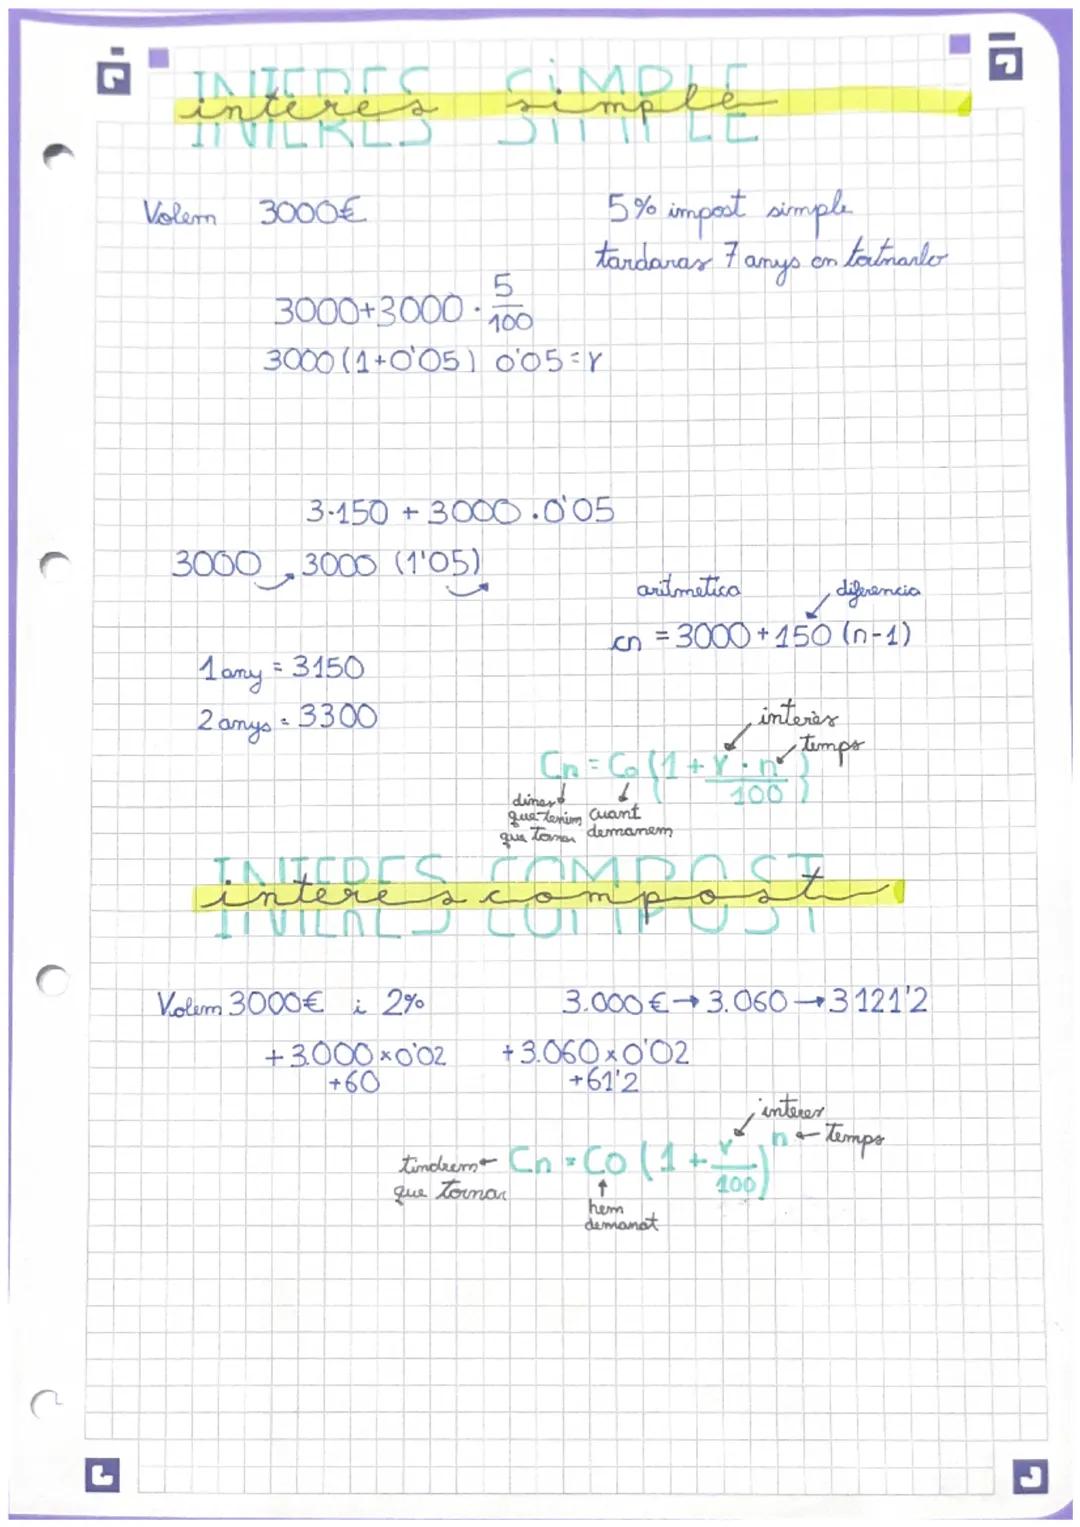 INTERES SIMPLE
interes simple
Volem 3000€ 5% impost simple
tardaras 7 anys en tortnarlo
3000+3000 · 5/100
3000 (1+0'05) 0'05=r
3.150 + 3000 . 0'05
3000 3000 (1'05)
aritmetica diferencia
cn = 3000 + 150 (n-1)
1 any = 3150
2 anys = 3300
interès
temps
Cn = Co (1 + r · n / 100)
diners que tenim que tornar
cuant demanem
INTERES COMPOST
interes compost
Volem 3000€ i 2% 3.000€ → 3.060 → 3121'2
+3.000 × 0'02 +3.060 × 0'02
+60 +61'2
interes
temps
tindrem que tornar ← Cn = Co (1 + r/100)^n
hem demanat